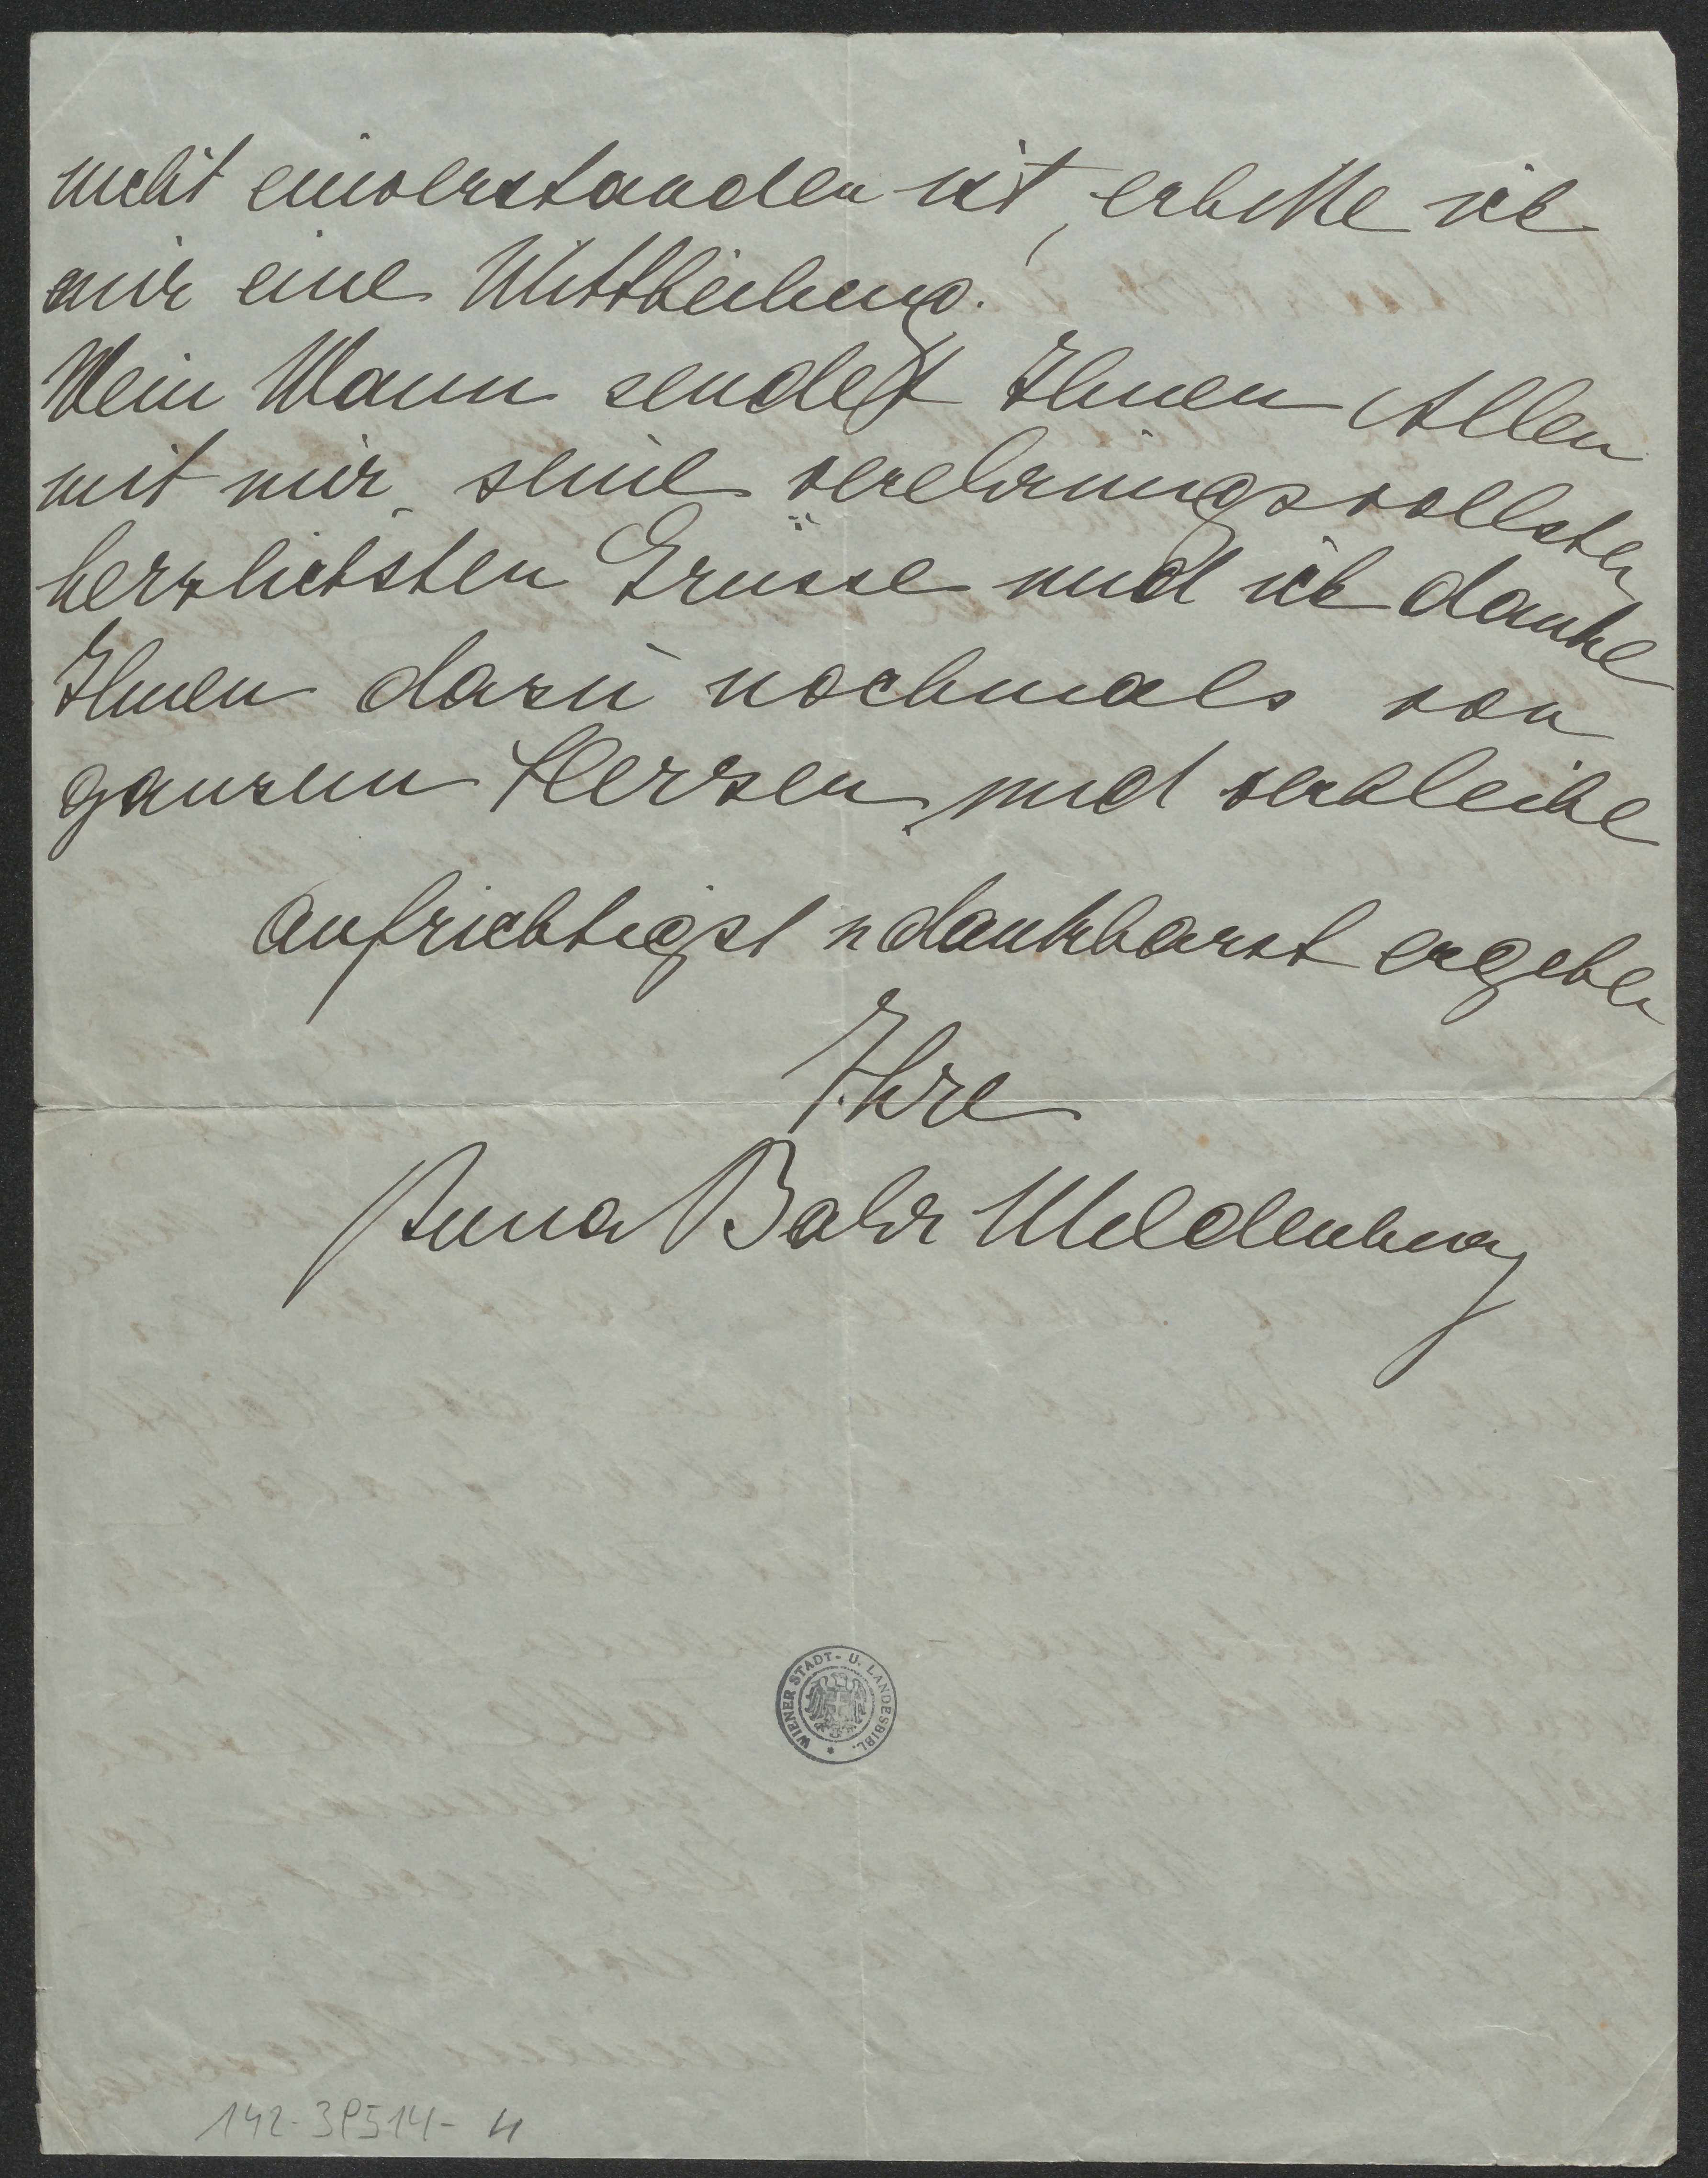 nicht einverstanden ist, erbitte ich
mir eine Mittheilung.
Mein Mann sendet Ihnen Allen
mit mir seine verehrungsvollsten
herzlichsten Grüsse und ich danke
Ihnen dazu nochmals von
ganzem Herzen und verbleibe
aufrichtigst u dankbarst ergeben
Ihre
Anna Bahr Mildenburg
WIENER STADT- U. LANDESBIBL.
142-39514- 4